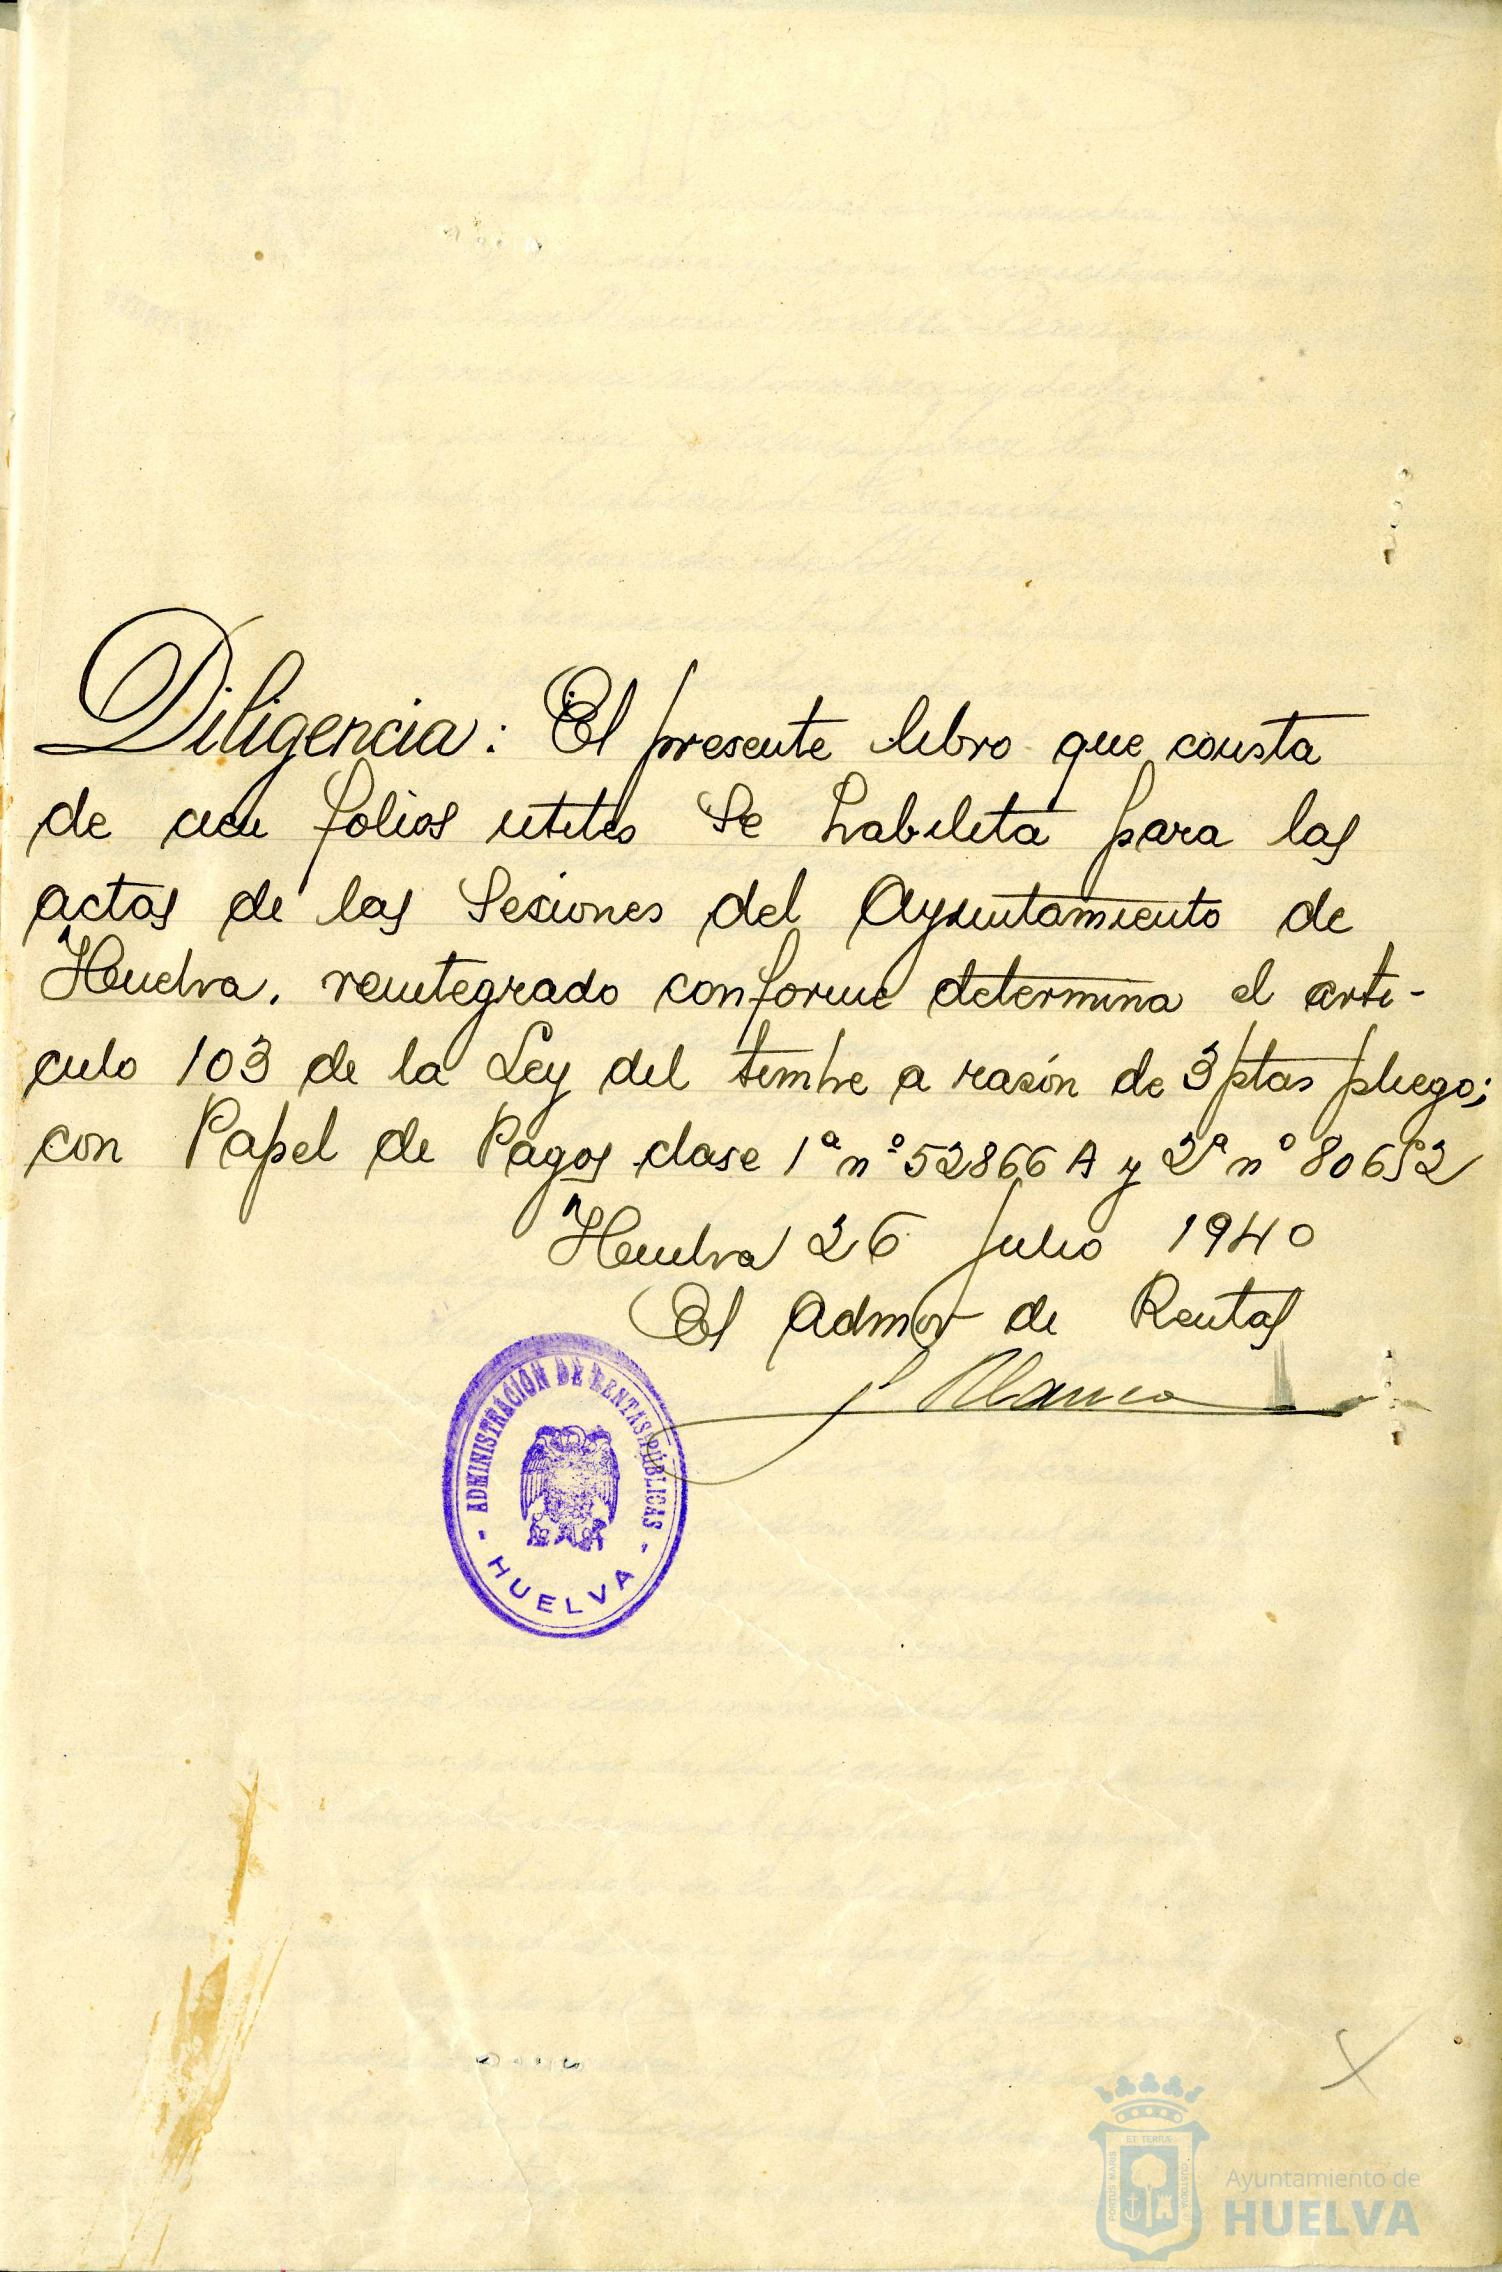 Diligencia: El presente libro que consta
de cien folios utiles se habilita para las
actas de las Sesiones del Ayuntamiento de
Huelva. reintegrado conforme determina el arti-
culo 103 de la Ley del timbre a razón de 3 ptas pliego;
con Papel de Pagos clase 1ª nº 52866 A y 2ª nº 80652
Huelva 26 Julio 1940
El Admor de Rentas
Blanco
ADMINISTRACIÓN DE RENTAS PÚBLICAS
- HUELVA -
PORTUS MARIS ET TERRÆ CUSTODIA
Ayuntamiento de
HUELVA